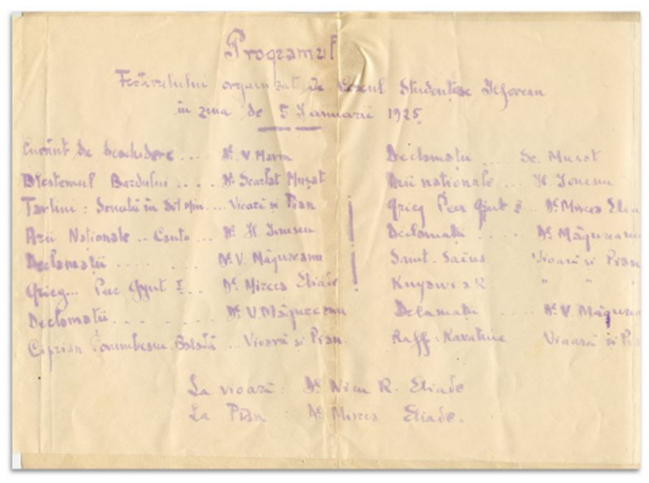 Programul
Festivalului organizat de Cercul Studențesc Ilfovean
în ziua de 5 Ianuarii 1925
Cuvânt de deschidere ... Dl. V. Marin
Blestemul Bardului .... Dl. Scarlat Muzat
Tartini: Sonata în Sol min... Vioară si Pian
Arii Naționale .. Canto... Dl. H. Ionescu
Declamații ...... Dl. V. Măgureanu
Grieg... Peer Gynt I... Dl. Mircea Eliade
Declamații ....... Dl. V. Măgureanu
Ciprian Porumbescu Baladă .. Vioară si Pian.
Declamații .... Sc. Muzat
Arii naționale ... H. Ionescu
Grieg Peer Gynt .. Dl. Mircea Elia
Declamații ...... Dl. Măgurean
Saint. Saëns Vioară si Pian
" "
Declamații .... Dl. V. Măgu
Raff. Kavatine Vioară si Pi
La vioară: Dl. Nicu R. Eliade
La Pian : Dl. Mircea Eliade.